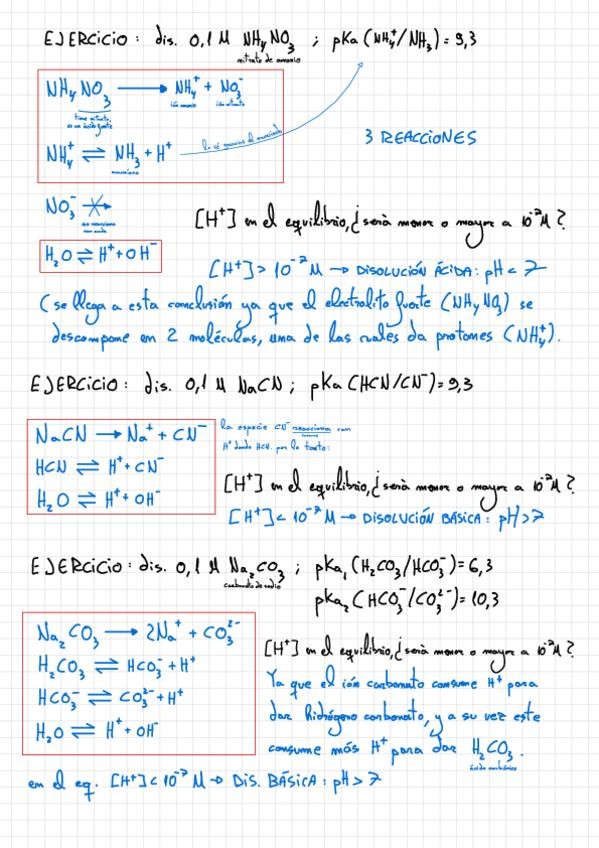 EJERCICIO: dis. 0,1 M NH₄NO₃ ; pKa (NH₄⁺/NH₃) = 9,3
nitrato de amonio
NH₄NO₃ → NH₄⁺ + NO₃⁻
tiene nitrato, es un ácido fuerte
ión amonio ión nitrato
NH₄⁺ ⇌ NH₃ + H⁺ lo sé gracias al enunciado
amoniaco
3 REACCIONES
NO₃⁻ ↛
no reacciona con nada
[H⁺] en el equilibrio, ¿será menor o mayor a 10⁻⁷M?
H₂O ⇌ H⁺ + OH⁻
[H⁺] > 10⁻⁷ M → DISOLUCIÓN ÁCIDA: pH < 7
(se llega a esta conclusión ya que el electrolito fuerte (NH₄NO₃) se
descompone en 2 moléculas, una de las cuales da protones (NH₄⁺).
EJERCICIO: dis. 0,1 M NaCN ; pKa (HCN/CN⁻) = 9,3
NaCN → Na⁺ + CN⁻
HCN ⇌ H⁺ + CN⁻
H₂O ⇌ H⁺ + OH⁻
la especie CN⁻ reacciona con
H⁺ dando HCN. por lo tanto:
[H⁺] en el equilibrio, ¿será menor o mayor a 10⁻⁷M?
[H⁺] < 10⁻⁷ M → DISOLUCIÓN BÁSICA: pH > 7
EJERCICIO: dis. 0,1 M Na₂CO₃ ; pKa₁ (H₂CO₃/HCO₃⁻) = 6,3
carbonato de sodio
pKa₂ (HCO₃⁻/CO₃²⁻) = 10,3
Na₂CO₃ → 2Na⁺ + CO₃²⁻
H₂CO₃ ⇌ HCO₃⁻ + H⁺
HCO₃⁻ ⇌ CO₃²⁻ + H⁺
H₂O ⇌ H⁺ + OH⁻
[H⁺] en el equilibrio, ¿será menor o mayor a 10⁻⁷M?
Ya que el ión carbonato consume H⁺ para
dar hidrógeno carbonato, y a su vez este
consume más H⁺ para dar H₂CO₃.
ácido carbónico
en el eq. [H⁺] < 10⁻⁷ M → DIS. BÁSICA: pH > 7